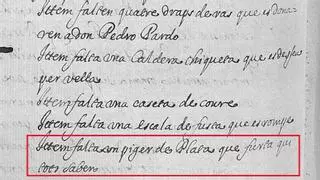 Ittem falten quatre draps de ras que es dona
ren a don Pedro Pardo
Ittem falta una Caldera chiqueta que es desfeu
per vella
Ittem falta una caseta de coure
Ittem falta una escala de fusta que es rompe
Ittem falta un pitger de Plata que furta qui
tots saben